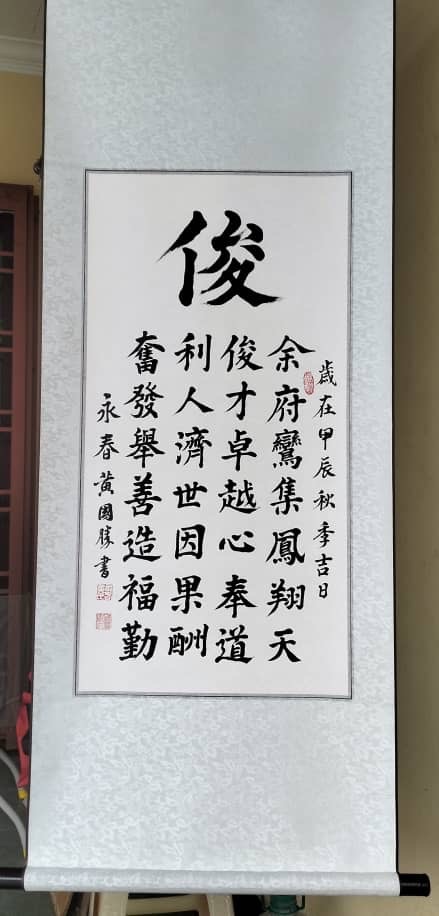 俊
歲在甲辰秋季吉日
余府鸞集鳳翔天
俊才卓越心奉道
利人濟世因果酬
奮發舉善造福勤
永春黃國勝書